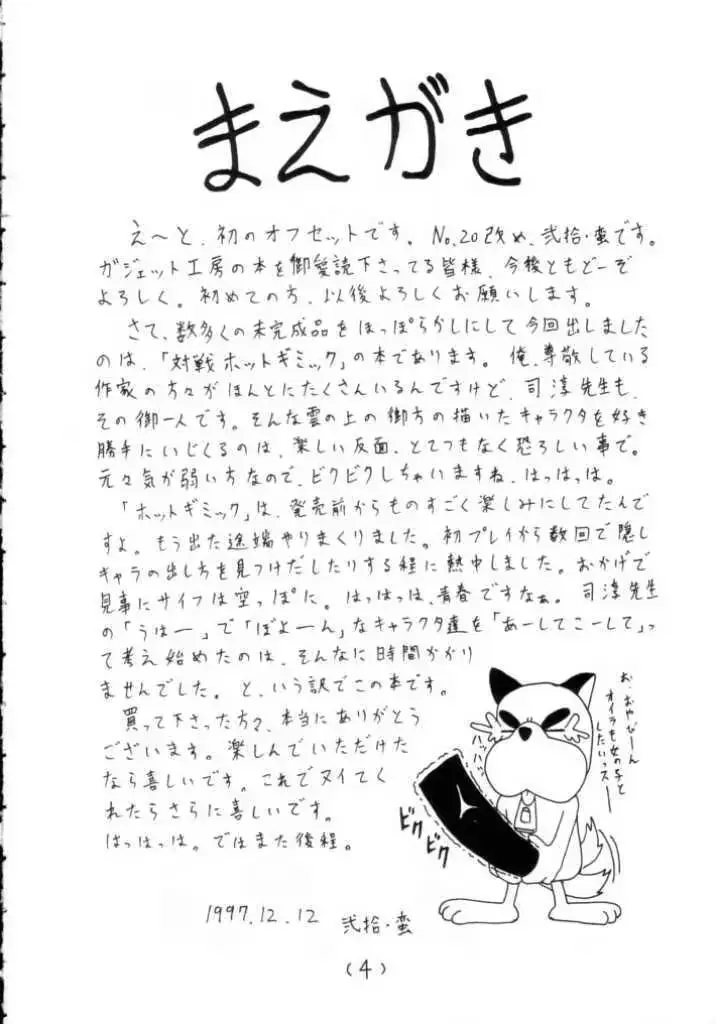 まえがき
え〜と、初のオフセットです。No.20改め、弐拾・蛮です。
ガジェット工房の本を御愛読下さってる皆様、今後ともどーぞ
よろしく。初めての方、以後よろしくお願いします。
さて、数多くの未完成品をほっぽらかしにして今回出しました
のは、「対戦ホットギミック」の本であります。俺、尊敬している
作家の方々がほんとにたくさんいるんですけど、司淳先生も、
その御一人です。そんな雲の上の御方の描いたキャラクタを好き
勝手にいじくるのは、楽しい反面、とてつもなく恐ろしい事で。
元々気が弱い方なので、ビクビクしちゃいますね、はっはっは。
「ホットギミック」は、発売前からものすごく楽しみにしてたんで
すよ。もう出た途端やりまくりました。初プレイから数回で隠し
キャラの出し方を見つけだしたりする程に熱中しました。おかげで
見事にサイフは空っぽに。はっはっは、青春ですなぁ。司淳先生
の「うはー」で「ぼよーん」なキャラクタ達を「あーしてこーして」っ
て考え始めたのは、そんなに時間かかり
ませんでした。と、いう訳でこの本です。
買って下さった方々、本当にありがとう
ございます。楽しんでいただけた
なら喜しいです。これでヌイてく
れたらさらに喜しいです。
はっはっは。ではまた後程。
1997.12.12 弐拾・蛮
お、おやびーん
オイラも女の子と
したいっスー
ハァハァ
ビク
ビク
(4)